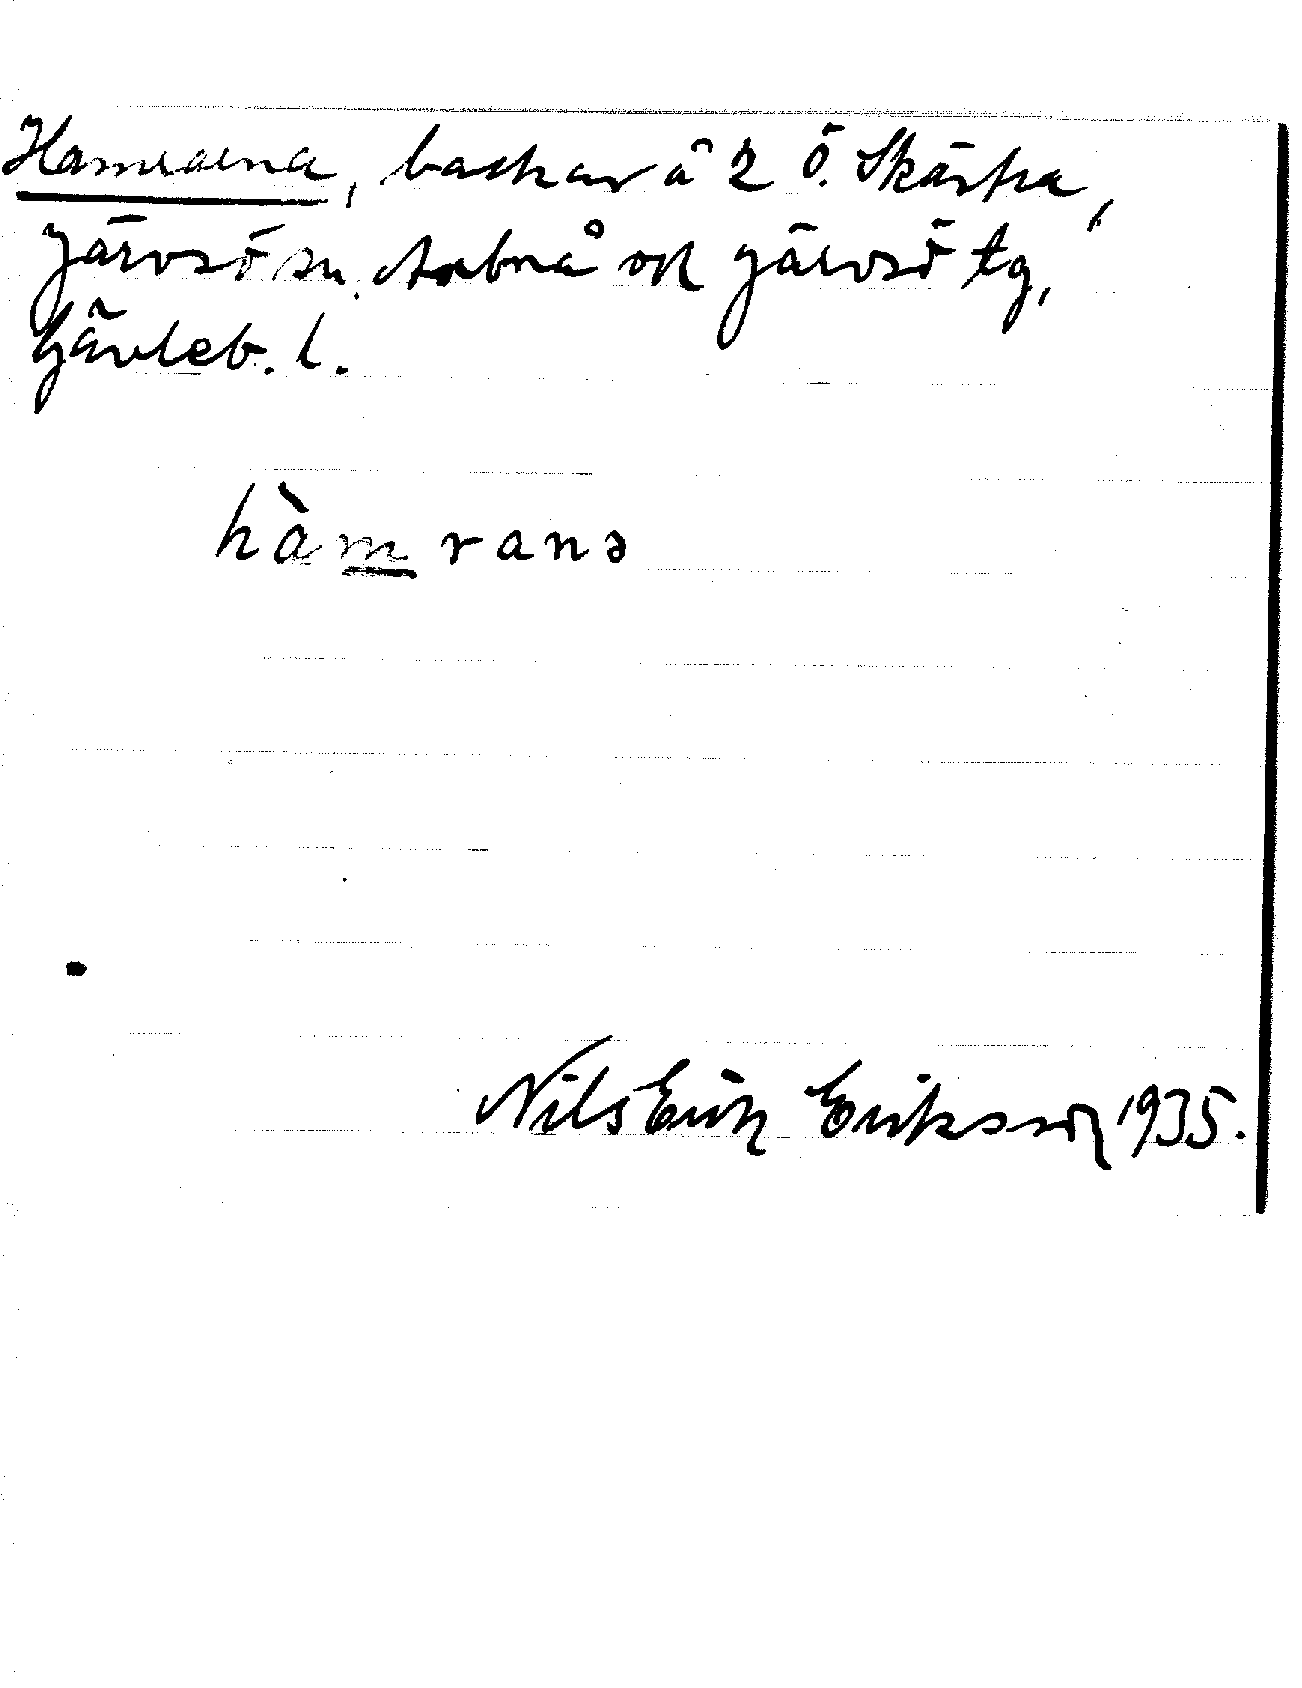 Hamrarna, backar å 2 Ö. Skästra,
Järvsö sn. Arbrå och Järvsö tg,
Gävleb. l.
hàmranə
Nils Erik Eriksson 1935.